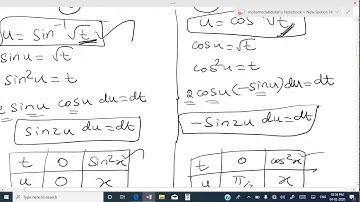 mohamedabdullah's Notebook > New Section
u = sin⁻¹ √t
sinu = √t
sin²u = t
2 sinu cosu du = dt
sin2u du = dt
t 0 sin²x
u 0 x
u = cos √t
cosu = √t
cos²u = t
2 cosu (-sinu) du = dt
-sin2u du = dt
t 0 cos²x
u π/ x